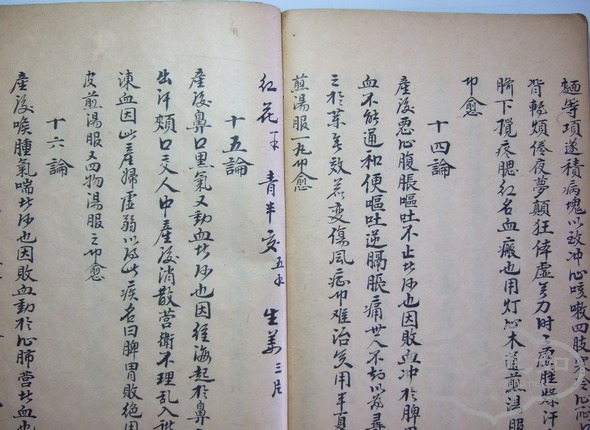 麵等項遂積病塊以致冲心咳嗽四肢寒
背輕煩倦夜夢顛狂倖虛無力時
臍下攪疼腮紅名血瘕也用灯心木通煎湯服
卽愈
十四論
產後惡心腹脹嘔吐不止此何也因敗血冲於脾
血不能通和便嘔吐逆膈脹痛世人不
三於藥無效若变傷風症卽難治矣用半夏
煎湯服一丸卽愈
紅花 青半皮 五 生姜三片
十五論
產後鼻口黑氣又動血此何也因徑海起於鼻
出汗頰口交人中產後消散营衛不理乱入
凍血因此產婦虛弱以成此疾名曰脾胃敗绝用
皮煎湯服又四物湯服之卽愈
十六論
產後喉腫氣喘此何也因敗血動於心肺营此血也